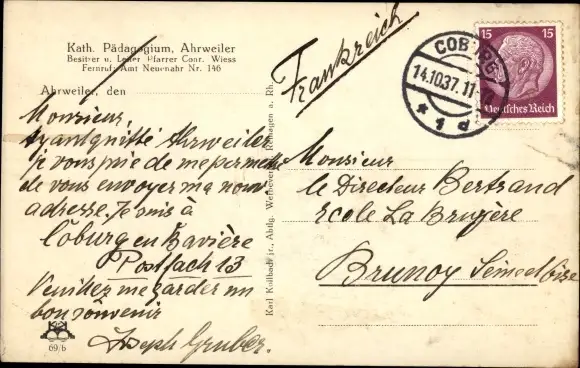 Kath. Pädagogium, Ahrweiler
Besitzer u. Leiter Pfarrer Conr. Wiess
Fernruf: Amt Neuenahr Nr. 146
Ahrweiler, den
Monsieur,
ayant quitté Ahrweiler
je vous prie de me permettre
de vous envoyer ma nouv.
adresse. Je suis à
Coburg en Bavière
Postfach 13
Veuillez me garder un
bon souvenir
Joseph Gruber.
69/6
Karl Kollbach jr., Abtlg. Remagen a. Rh.
Frankreich
COBURG
14.10.37. 11
* 1 d
15 15
Deutsches Reich
Monsieur
le Directeur Bertrand
Ecole La Bruyère
Brunoy Seine et Oise